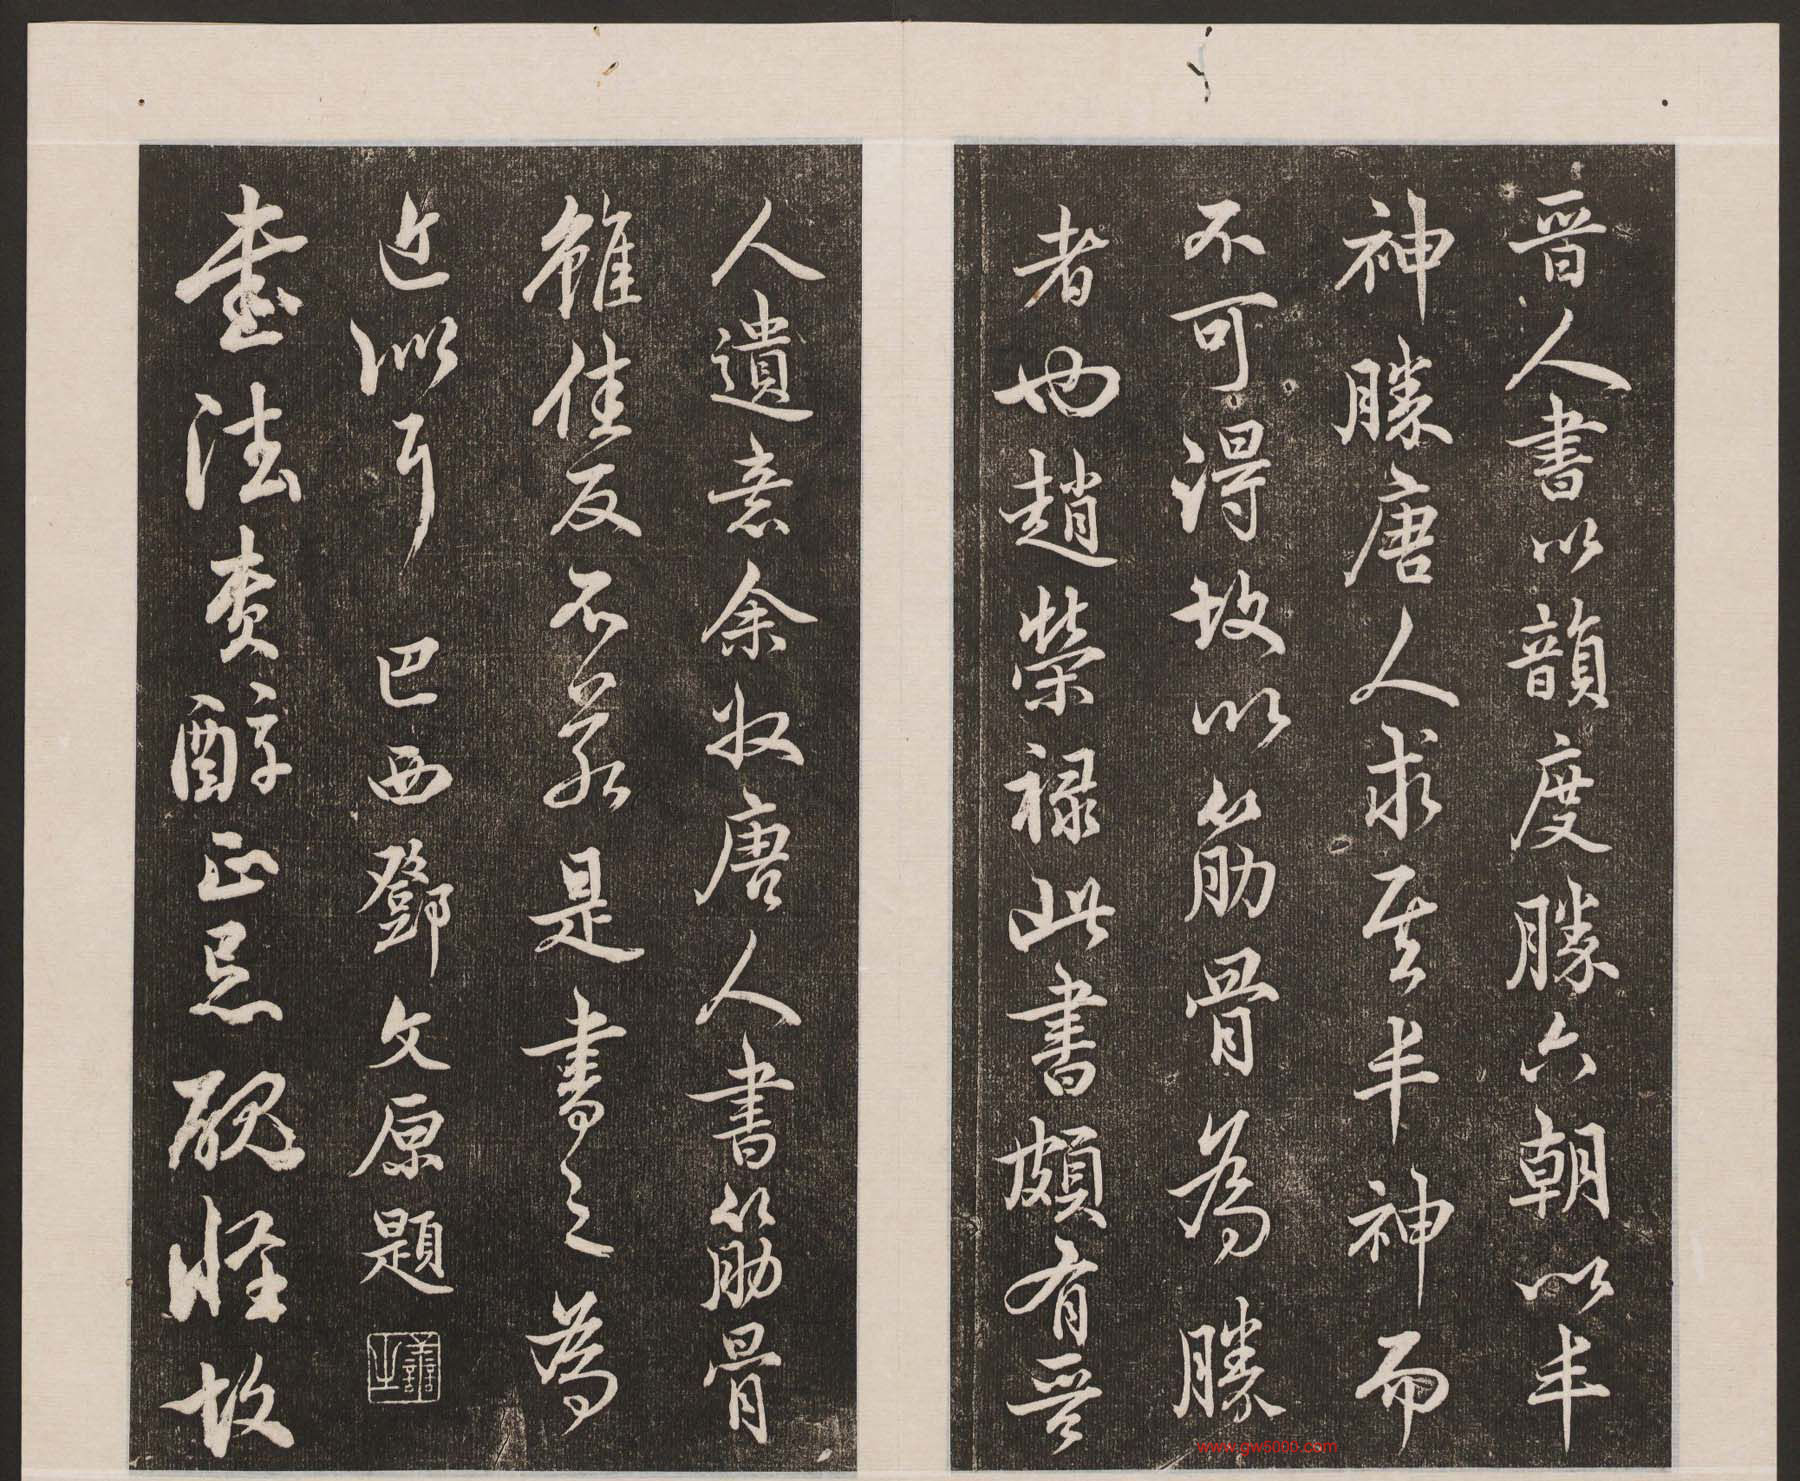 晉人書以韻度勝六朝以丰
神勝唐人求其丰神而
不可得故以筋骨為勝
者也趙榮祿此書頗有晉
人遺意余收唐人書筋骨
雖佳反不若是書之為
近似耳 巴西鄧文原題
善之
書法貴醇正忌醜怪故